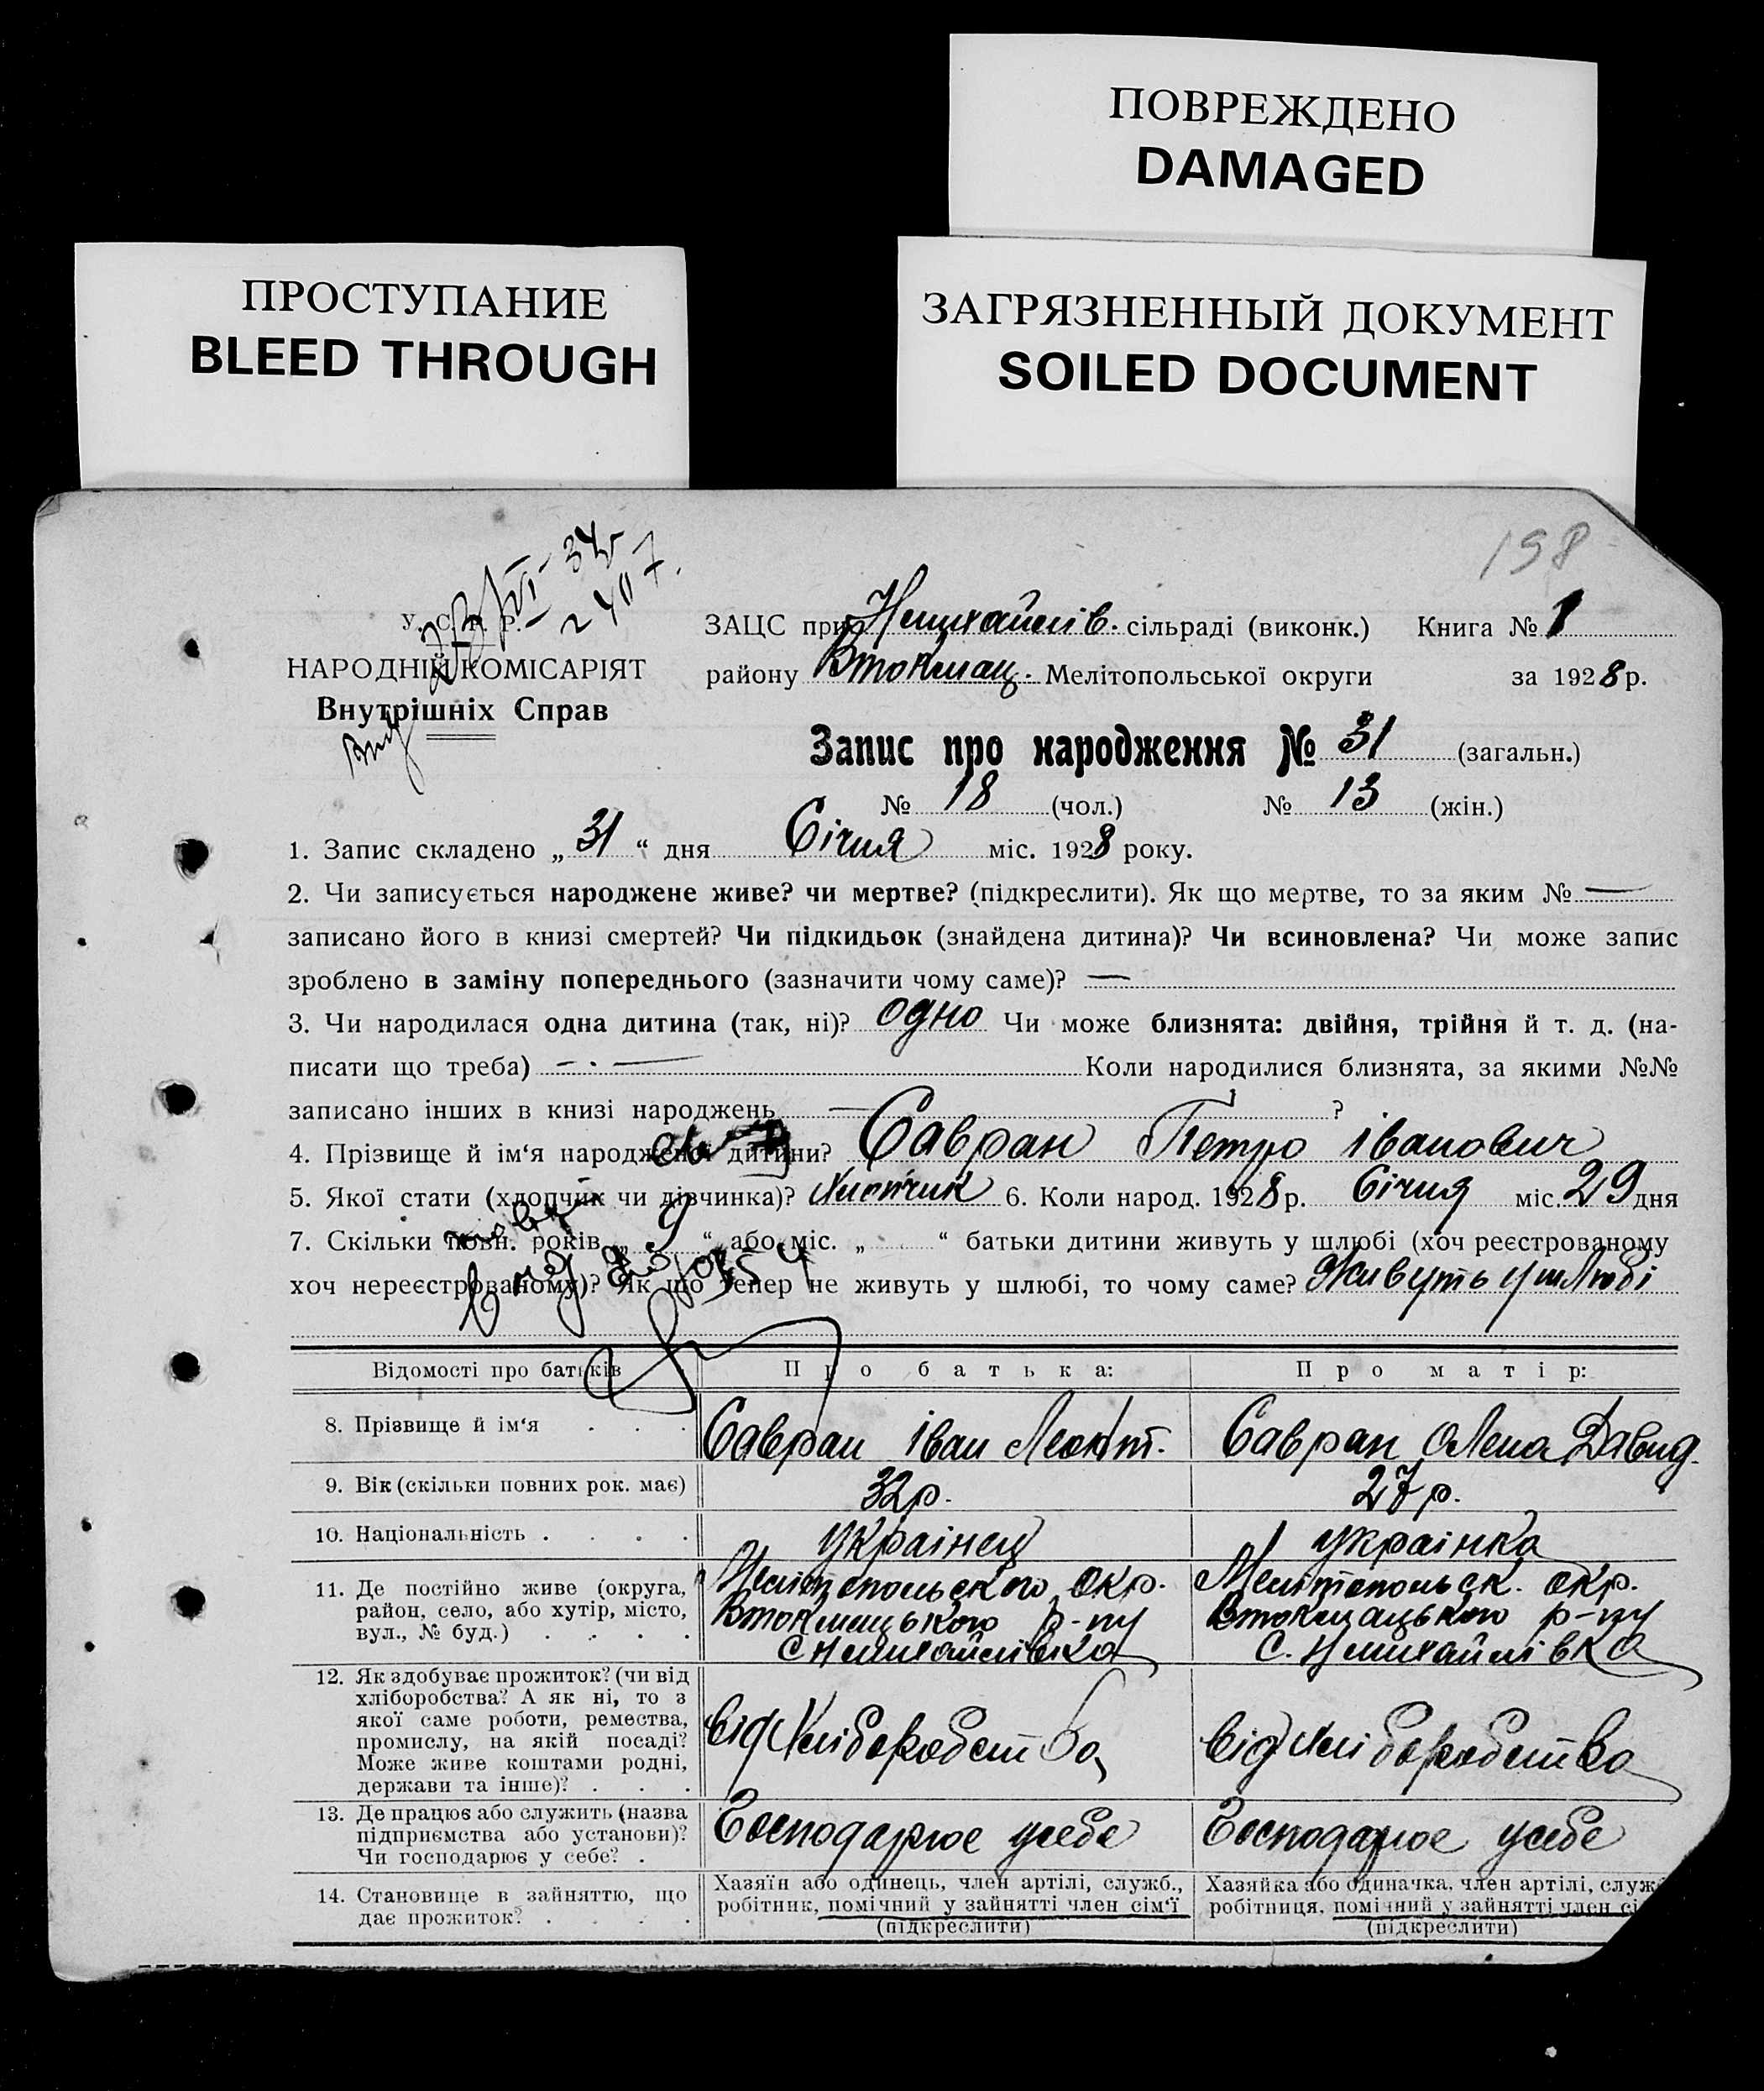 ПОВРЕЖДЕНО
DAMAGED
ПРОСТУПАНИЕ
BLEED THROUGH
ЗАГРЯЗНЕННЫЙ ДОКУМЕНТ
SOILED DOCUMENT
198
У. С. Р. Р.
НАРОДНІЙ КОМІСАРІЯТ
Внутрішніх Справ
ЗАЦС при Нмихайлів. сільраді (виконк.) Книга № 1
району Втокмац. Мелітопольської округи за 1928 р.
Запис про народження № 31 (загальн.)
№ 18 (чол.) № 13 (жін.)
1. Запис складено „ 31 “ дня Січня міс. 1928 року.
2. Чи записується народжене живе? чи мертве? (підкреслити). Як що мертве, то за яким № —
записано його в книзі смертей? Чи підкидьок (знайдена дитина)? Чи всиновлена? Чи може запис
зроблено в заміну попереднього (зазначити чому саме)? —
3. Чи народилася одна дитина (так, ні)? одно Чи може близнята: двійня, трійня й т. д. (на-
писати що треба) — Коли народилися близнята, за якими №№
записано інших в книзі народжень — ?
4. Прізвище й ім‘я народженої дитини? Савран Петро Іванович
5. Якої стати (хлопчик чи дівчинка)? Хлопчик 6. Коли народ. 1928 р. Січня міс. 29 дня
7. Скільки повн. років „ 9 “ або міс. „ “ батьки дитини живуть у шлюбі (хоч реєстрованому
хоч нереєстрованому)? Як що тепер не живуть у шлюбі, то чому саме? Живуть у шлюбі
Відомості про батьків Про батька: Про матір:
8. Прізвище й ім‘я Савран Іван Леонт. Савран Олена Давид.
9. Вік (скільки повних рок. має) 32 р. 27 р.
10. Національність українец українка
11. Де постійно живе (округа, Мелітопольского окр. Мелітопольск. окр.
район, село, або хутір, місто, Втокмацького р-ну Втокмацького р-ну
вул., № буд.) С Нмихайлівка С. Нмихайлівка
12. Як здобуває прожиток? (чи від
хліборобства? А як ні, то з
якої саме роботи, ремества,
промислу, на якій посаді? від хліборобства від хліборобства
Може живе коштами родні,
держави та інше)?
13. Де працює або служить (назва
підприємства або установи)? Господарює усебе Господарює усебе
Чи господарює у себе?
14. Становище в зайняттю, що
дає прожиток?
Хазяїн або одинець, член артілі, служб.,
робітник, помічний у зайнятті член сім‘ї
(підкреслити)
Хазяйка або одиначка, член артілі, служ
робітниця, помічний у зайнятті член сі
(підкреслити)